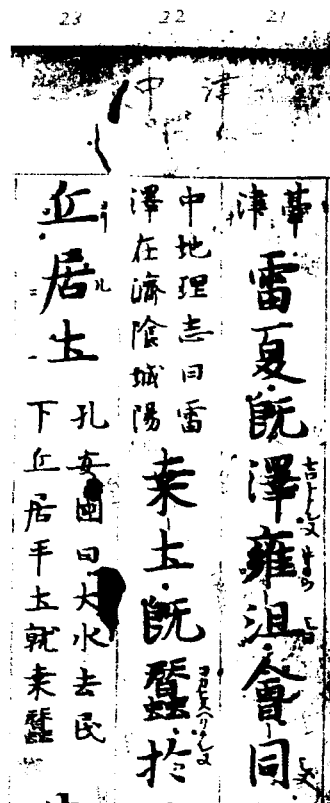 23 22 21
津 中
津
雷夏既澤雍沮會同
中地理志曰雷
澤在濟陰城陽
桒圡既蠶於
丘居圡
孔安國曰大水去民
下丘居平圡就桒蠶